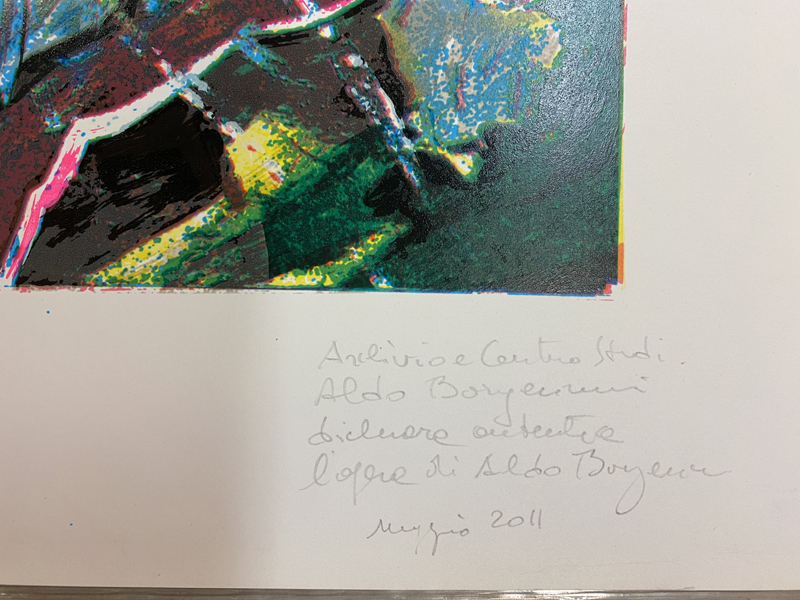 Archivio e Centro Studi.
Aldo Borgonzoni
dichiara autentica
l'opera di Aldo Borgonzoni
Maggio 2011